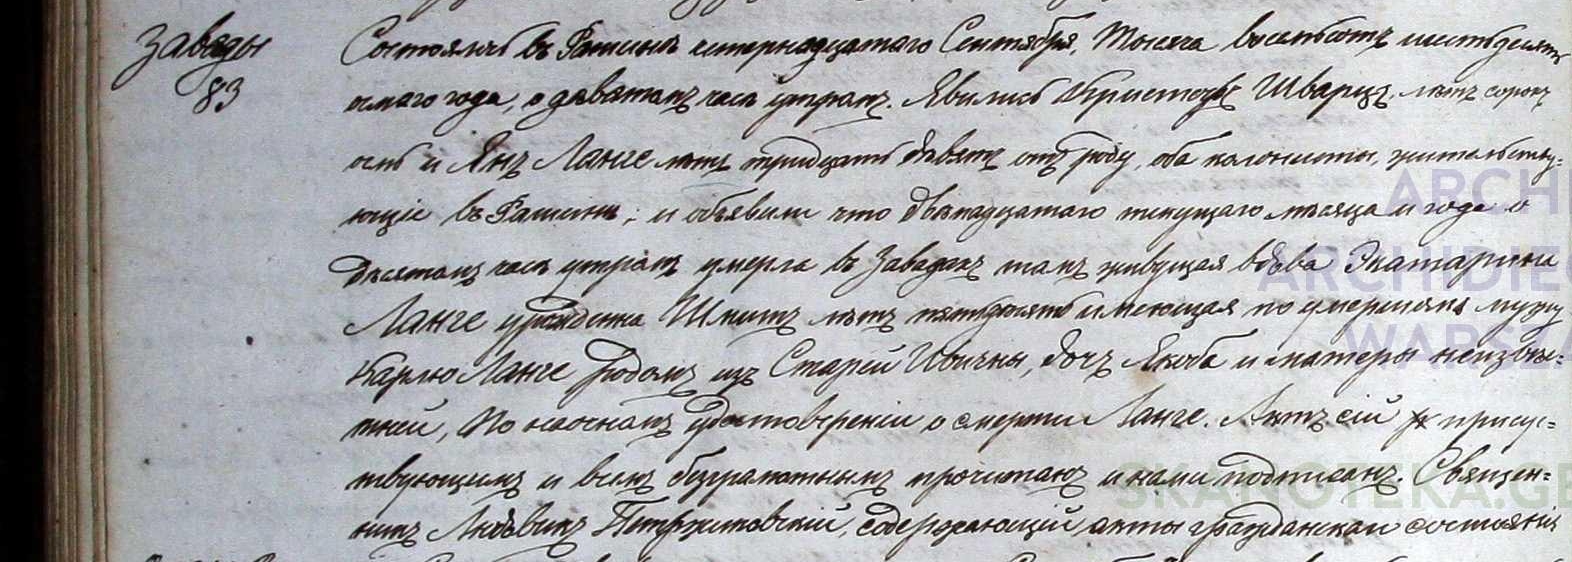 Заводы
83
Состоялось въ Рашинѣ четырнадцатаго Сентября, Тысяча восемьсотъ шестьдесятъ
осмаго года, о девятомъ часѣ утромъ. Явились Христофъ Шварцъ лѣтъ сорокъ
осмь и Янъ Ланге лѣтъ тридцать девять отъ роду, оба колонисты, жительству-
ющіе въ Рашинѣ, и объявили что двѣнадцатаго текущаго мѣсяца и года о
десятомъ часѣ утромъ умерла въ Заводахъ тамъ живущая вдова Экатарина
Ланге урожденна Шмитъ лѣтъ пятьдесятъ имеющая по умершемъ мужу
Карлю Ланге родомъ изъ Старей, дочь Якоба и матеры неизвѣ-
стней, По наочномъ удостовереніи о смерти Ланге. Актъ сій присуст-
твующимъ и всемъ безграмотнымъ прочитанъ и нами подписанъ. Священ-
никъ Людвикъ содержающій акты гражданскаго состоянія
ARCHI
ARCHIDIE
WARSZA
SKANOTEKA.GE